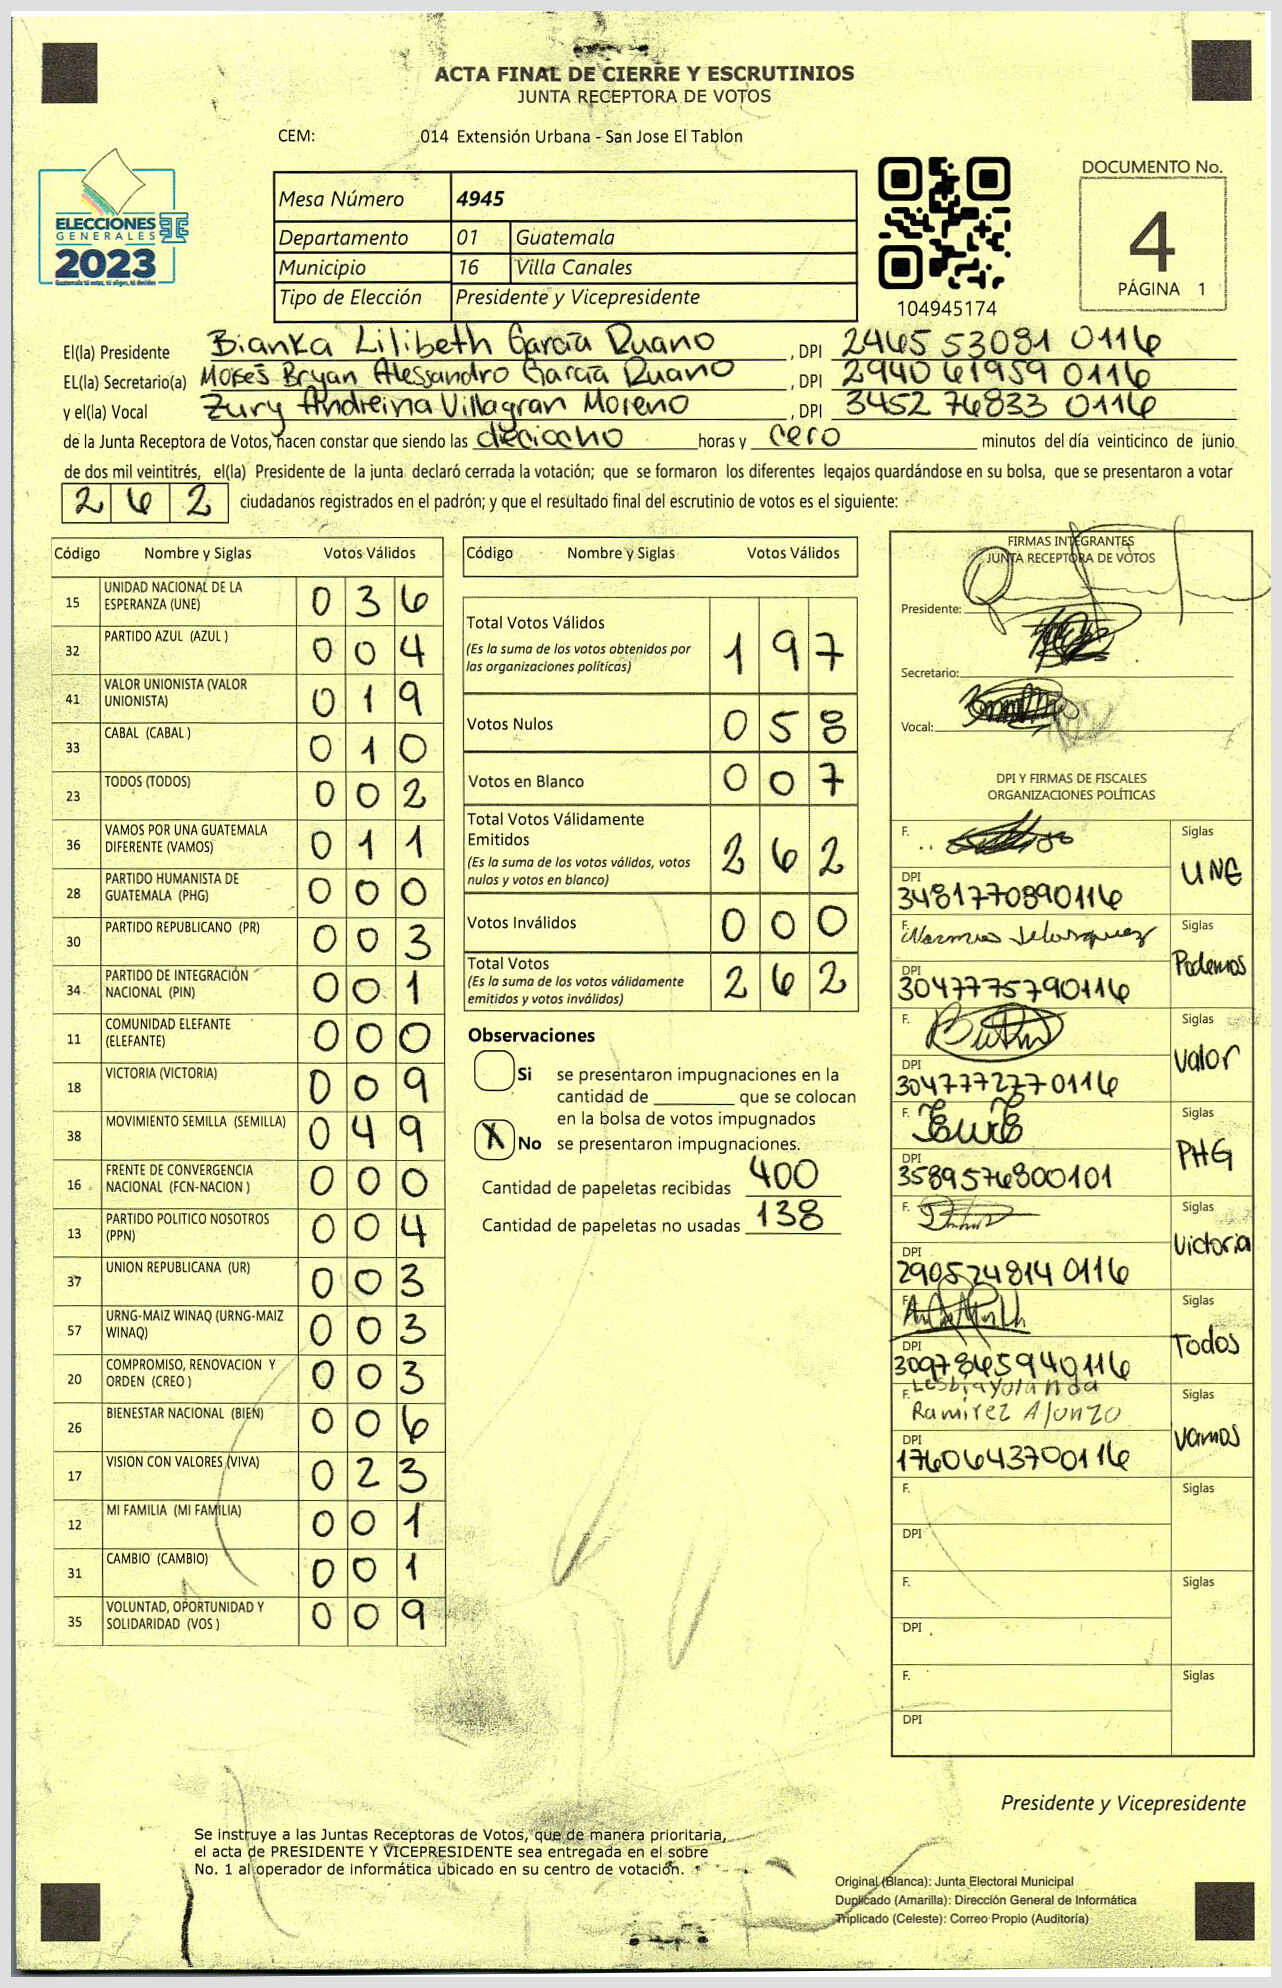 ACTA FINAL DE CIERRE Y ESCRUTINIOS
JUNTA RECEPTORA DE VOTOS
CEM: 014 Extensión Urbana - San Jose El Tablon
ELECCIONES
GENERALES
2023
Guatemala tú votas, tú eliges, tú decides
Mesa Número 4945
Departamento 01 Guatemala
Municipio 16 Villa Canales
Tipo de Elección Presidente y Vicepresidente
104945174
DOCUMENTO No.
4
PÁGINA 1
El(la) Presidente Bianka Lilibeth García Ruano , DPI 2465 53081 0116
EL(la) Secretario(a) Moises Bryan Alessandro García Ruano , DPI 2940 61959 0116
y el(la) Vocal Zury Andreina Villagran Moreno , DPI 3452 76833 0116
de la Junta Receptora de Votos, hacen constar que siendo las deciocho horas y cero minutos del día veinticinco de junio
de dos mil veintitrés, el(la) Presidente de la junta declaró cerrada la votación; que se formaron los diferentes legajos guardándose en su bolsa, que se presentaron a votar
262 ciudadanos registrados en el padrón; y que el resultado final del escrutinio de votos es el siguiente:
Código Nombre y Siglas Votos Válidos
15 UNIDAD NACIONAL DE LA ESPERANZA (UNE) 036
32 PARTIDO AZUL (AZUL ) 004
41 VALOR UNIONISTA (VALOR UNIONISTA) 019
33 CABAL (CABAL ) 010
23 TODOS (TODOS) 002
36 VAMOS POR UNA GUATEMALA DIFERENTE (VAMOS) 011
28 PARTIDO HUMANISTA DE GUATEMALA (PHG) 000
30 PARTIDO REPUBLICANO (PR) 003
34 PARTIDO DE INTEGRACIÓN NACIONAL (PIN) 001
11 COMUNIDAD ELEFANTE (ELEFANTE) 000
18 VICTORIA (VICTORIA) 009
38 MOVIMIENTO SEMILLA (SEMILLA) 049
16 FRENTE DE CONVERGENCIA NACIONAL (FCN-NACION ) 000
13 PARTIDO POLITICO NOSOTROS (PPN) 004
37 UNION REPUBLICANA (UR) 003
57 URNG-MAIZ WINAQ (URNG-MAIZ WINAQ) 003
20 COMPROMISO, RENOVACION Y ORDEN (CREO ) 003
26 BIENESTAR NACIONAL (BIEN) 006
17 VISION CON VALORES (VIVA) 023
12 MI FAMILIA (MI FAMILIA) 001
31 CAMBIO (CAMBIO) 001
35 VOLUNTAD, OPORTUNIDAD Y SOLIDARIDAD (VOS ) 009
Código Nombre y Siglas Votos Válidos
Total Votos Válidos 197
(Es la suma de los votos obtenidos por las organizaciones políticas)
Votos Nulos 058
Votos en Blanco 007
Total Votos Válidamente Emitidos 262
(Es la suma de los votos válidos, votos nulos y votos en blanco)
Votos Inválidos 000
Total Votos 262
(Es la suma de los votos válidamente emitidos y votos inválidos)
Observaciones
Si se presentaron impugnaciones en la
cantidad de ________ que se colocan
en la bolsa de votos impugnados
X No se presentaron impugnaciones.
Cantidad de papeletas recibidas 400
Cantidad de papeletas no usadas 138
FIRMAS INTEGRANTES
JUNTA RECEPTORA DE VOTOS
Presidente:
Secretario:
Vocal:
DPI Y FIRMAS DE FISCALES
ORGANIZACIONES POLÍTICAS
F. Siglas UNE
DPI 3481770890116
F. Siglas Podemos
DPI 3047775790116
F. Siglas Valor
DPI 3047772770116
F. Siglas PHG
DPI 3589576800101
F. Siglas Victoria
DPI 2905248140116
F. Siglas Todos
DPI 3097865940116
F. Lesbia Yolanda Ramirez Alonzo Siglas Vamos
DPI 1760643700116
F. Siglas
DPI
F. Siglas
DPI
F. Siglas
DPI
Presidente y Vicepresidente
Se instruye a las Juntas Receptoras de Votos, que de manera prioritaria,
el acta de PRESIDENTE Y VICEPRESIDENTE sea entregada en el sobre
No. 1 al operador de informática ubicado en su centro de votación.
Original (Blanca): Junta Electoral Municipal
Duplicado (Amarilla): Dirección General de Informática
Triplicado (Celeste): Correo Propio (Auditoría)